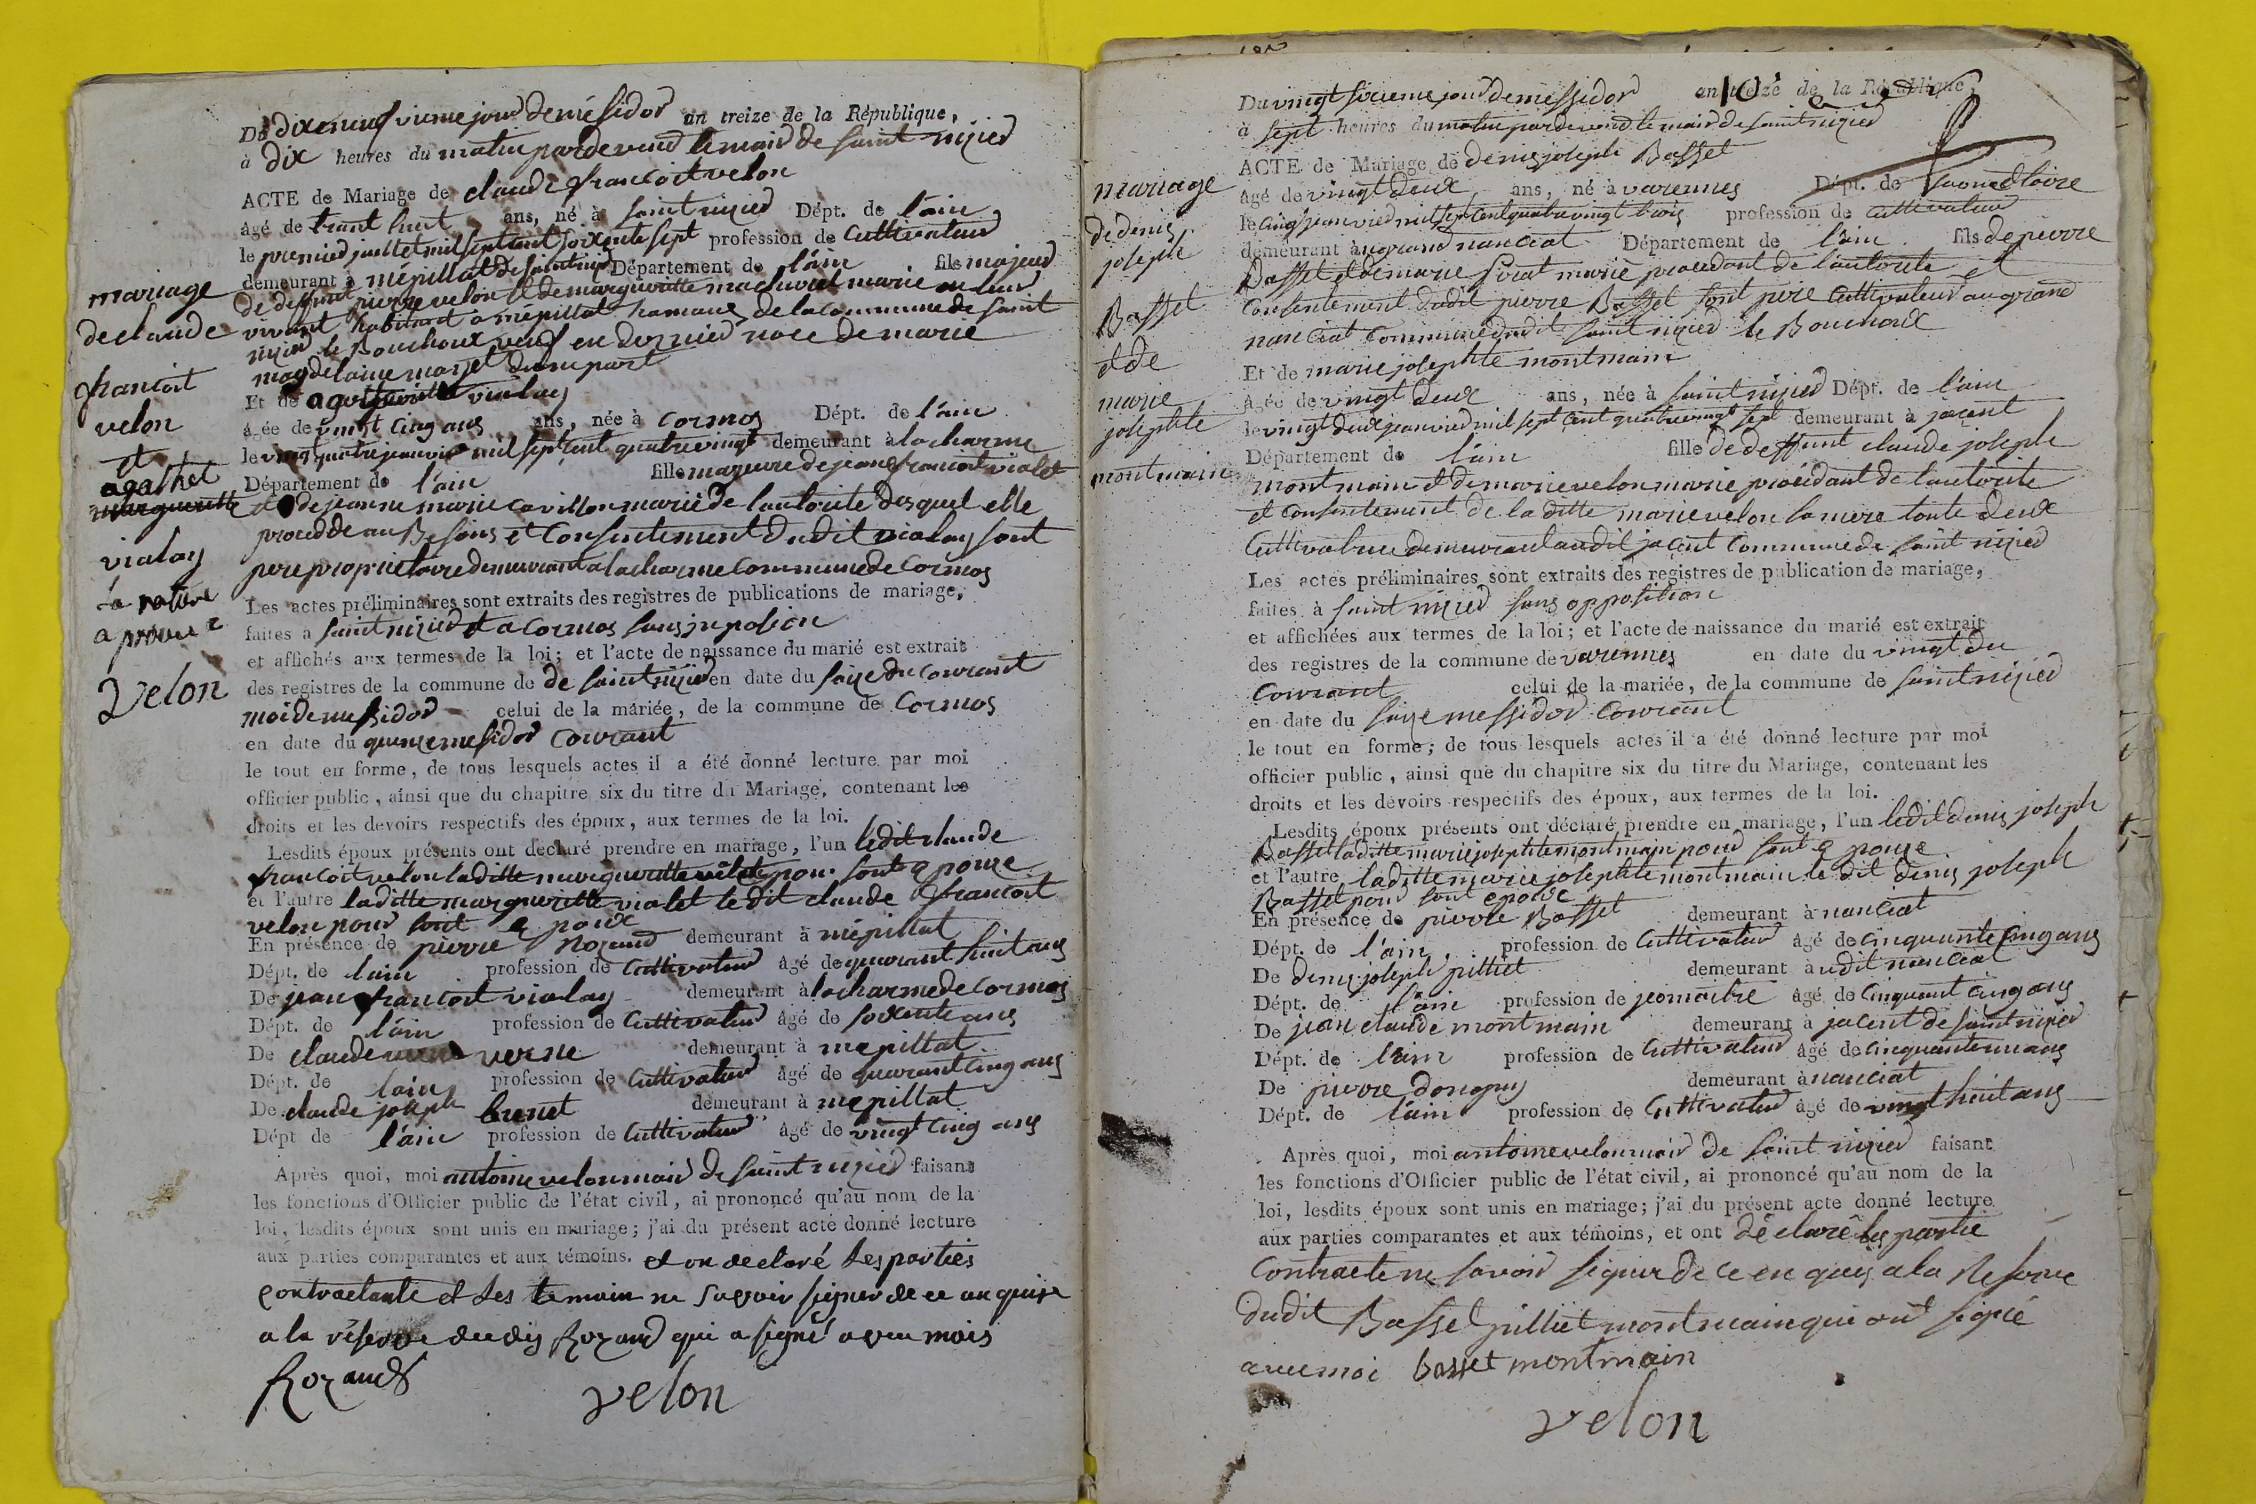 mariage
de claude
francoit
velon
et
agathe
margueritte
vialay
la rature
aprouvé
velon
Du dix neuf vieme jour de mesidor an treize de la République,
à dix heures du matin pardevend le maire de saint nizied
ACTE de Mariage de claude francoit velon
âgé de trant huit ans, né à saint nizied Dépt. de l'ain
le premied juillet mil sept cent soixente sept profession de Cultivateur
demeurant à mépillat de saint nizied Département de l'ain fils majeur
de deffunt pierre velon et de margueritte marie en leur
vivant habitant a mépillat hameau de la commune de saint
nizied le Bouchoux veuf en dernied noce de marie
magdelaine d'une part
Et de vialay
âgée de vingt cinq ans ans, née à Cormos Dépt. de l'ain
le vingt quatre janvie mil sept cent quatre vingt demeurant à la charme
Département de l'ain fille mageure de jean francoit vialet
et de jeanne marie cavillon marié de lautorite desquel elle
procedde au Besoins et Consentement dudit vialay sont
pere proprietaire demeurant a la charme commune de Cormos
Les actes préliminaires sont extraits des registres de publications de mariage,
faites à saint nizied et a Cormos sans oposion
et affichés aux termes de la loi; et l'acte de naissance du marié est extrait
des registres de la commune de de saint nizied en date du saize du courant
moi de messidor celui de la mariée, de la commune de Cormos
en date du quinze mesidor courant
le tout en forme, de tous lesquels actes il a été donné lecture par moi
officier public, ainsi que du chapitre six du titre du Mariage, contenant les
droits et les devoirs respectifs des époux, aux termes de la loi.
Lesdits époux présents ont déclaré prendre en mariage, l'un ledit claude
francoit velon laditte margueritte pour sont epouze
et l'autre laditte margueritte vialet le dit claude francoit
velon pour sont epoux
En présence de pierre Rozand demeurant à mépillat
Dépt. de l'ain profession de Cultivateur âgé de quarant huit ans
De jean francoit vialay demeurant à la charme de Cormos
Dépt. de l'ain profession de Cultivateur âgé de soixente ans
De claude verne demeurant à mepillat
Dépt. de l'ain profession de Cultivateur âgé de quarant cinq ans
De claude joseph brunet demeurant à mepillat
Dépt de l'ain profession de Cultivateur âgé de vingt cinq ans
Après quoi, moi antoine velon maire de saint nizied faisant
les fonctions d'Officier public de l'état civil, ai prononcé qu'au nom de la
loi, lesdits époux sont unis en mariage; j'ai du présent acte donné lecture
aux parties comparantes et aux témoins. et on declaré Les parties
contractante et Les temoin ne savoir signer de ce
a la réserve dudit Rozand qui a signé avec mois
Rozand
velon
mariage
de denis
joseph
Basset
et de
marie
josephte
montmain
Du vingt sixieme jour de messidor an treize de la République,
à sept heures du matin pardevend le maire de saint nizied
ACTE de Mariage de denis joseph Basset
âgé de vingt deux ans, né à varennes Dépt. de saone et loire
le cinq janvied mil sept cent quatre vingt trois profession de Cultivateur
demeurant à au grand nanciat Département de l'ain fils de pierre
Basset et de marie marié procedant de l'autorite et
Consentement dudit pierre Basset sont pere Cultivateur au grand
nanciat Commune dudit saint nizied le Bouchoux
Et de marie josephte montmain
âgée de vingt deux ans, née à saint nizied Dépt. de l'ain
le vingt deux janvied mil sept cent quatre vingt sept demeurant à jacent
Département de l'ain fille de deffunt claude joseph
montmain et de marie velon marié procédant de l'autorite
et Consentement de la ditte marie velon sa mere toute deux
Cultivatrice demeurant audit jacent Commune de saint nizied
Les actes préliminaires sont extraits des registres de publication de mariage,
faites à saint nizied sans opposition
et affichées aux termes de la loi; et l'acte de naissance du marié est extrait
des registres de la commune de varennes en date du vingt du
Courant celui de la mariée, de la commune de saint nizied
en date du saize messidor Courant
le tout en forme; de tous lesquels actes il a été donné lecture par moi
officier public, ainsi que du chapitre six du titre du Mariage, contenant les
droits et les devoirs respectifs des époux, aux termes de la loi.
Lesdits époux présents ont déclaré prendre en mariage, l'un ledit denis joseph
Basset laditte marie josephte montmain pour sont epouze
et l'autre laditte marie josephte montmain le dit denis joseph
Basset pour sont epoux
En présence de pierre Basset demeurant à nanciat
Dépt. de l'ain profession de Cultivateur âgé de cinquante cinq ans
De denis joseph pilliet demeurant à udit nanciat
Dépt. de l'ain profession de jeomaitre âgé de cinquant cinq ans
De jean claude montmain demeurant à jacent de saint nizied
Dépt. de l'ain profession de Cultivateur âgé de cinquante un ans
De pierre dongouy demeurant à nanciat
Dépt. de l'ain profession de Cultivateur âgé de vingt huit ans
Après quoi, moi antoine velon maire de saint nizied faisant
les fonctions d'Officier public de l'état civil, ai prononcé qu'au nom de la
loi, lesdits époux sont unis en mariage; j'ai du présent acte donné lecture
aux parties comparantes et aux témoins, et ont déclaré les partie
Contracte ne savoir signer de ce en quis a la Reserve
dudit Basset pilliet montmain qui ont signé
avec moi basset montmain
velon